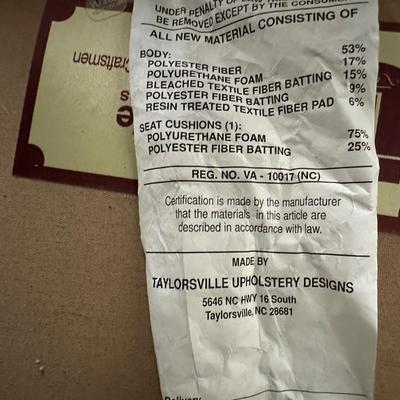 UNDER PENALTY OF LAW THIS
BE REMOVED EXCEPT BY THE CONSUMER
ALL NEW MATERIAL CONSISTING OF
BODY:
POLYESTER FIBER 53%
POLYURETHANE FOAM 17%
BLEACHED TEXTILE FIBER BATTING 15%
POLYESTER FIBER BATTING 9%
RESIN TREATED TEXTILE FIBER PAD 6%
SEAT CUSHIONS (1):
POLYURETHANE FOAM 75%
POLYESTER FIBER BATTING 25%
REG. NO. VA - 10017 (NC)
Certification is made by the manufacturer
that the materials in this article are
described in accordance with law.
MADE BY
TAYLORSVILLE UPHOLSTERY DESIGNS
5646 NC HWY 16 South
Taylorsville, NC 28681
Delivery
Craftsmen